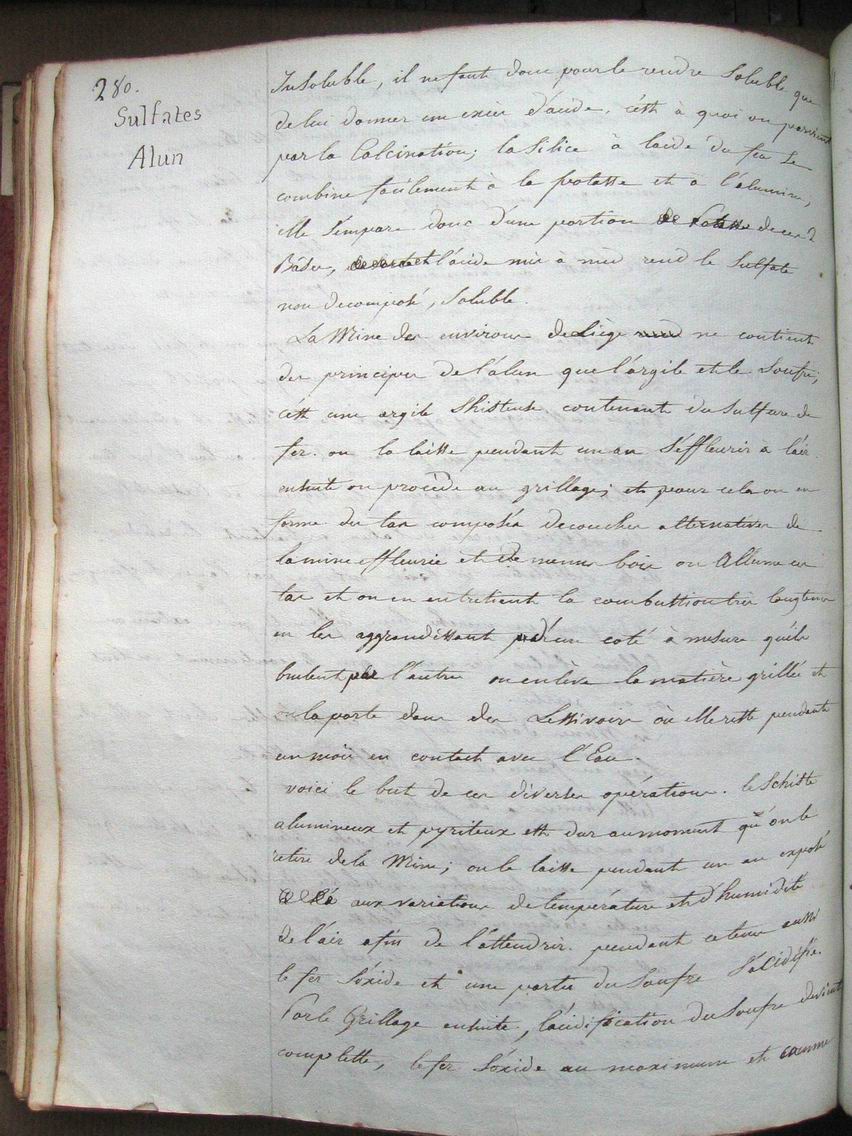 280.
Sulfates
Alun
Insoluble, il ne faut donc pour le rendre Soluble que
de lui donner un excès d'acide, c'est à quoi on parvient
par la Calcination; la Silice à l'aide du feu se
combine facilement à la potasse et à l'alumine,
elle s'empare donc d'une portion de Potasse de ces 2
Bases, l'acide mis à nud rend le Sulfate
non decomposé, Soluble.
La Mine des environs de Liège ne contient
des principes de l'alun que l'argile et le Soufre,
c'est une argile Shisteuse contenant du Sulfure de
fer. on la laisse pendant un an S'effleurir à l'air.
ensuite on procède au grillage; et pour cela on en
forme des tas composés de couches alternatives de
la mine effleurie et de menus bois on Allume ces
tas et on en entretient la combustion très longtems
en les aggrandissant d'un coté à mesure qu'ils
brulent par l'autre on enlève la matière grillée et
on la porte dans des Lessivoirs où elle reste pendant
un mois en contact avec l'Eau.
voici le but de ces diverses opérations. le Schiste
alumineux et pyriteux est dur au moment qu'on le
retire de la Mine; on le laisse pendant un an exposé
aux variations de température et d'humidité
de l'air afin de l'attendrir. pendant ce tems aussi
le fer S'oxide et une partie du Soufre S'acidifie.
Par le Grillage ensuite, l'acidification du Soufre devient
complette, le fer S'oxide au maximum et comme